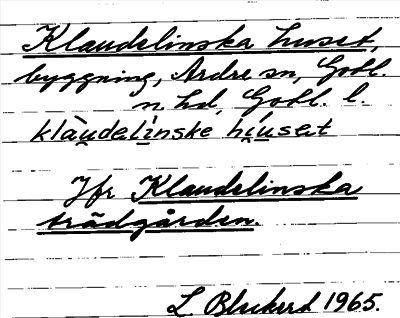 Klaudelinska huset,
byggning, Ardre sn, Gotl.
n. hd, Gotl. l.
klàu̯delínske hi̯úset
Jfr Klaudelinska
trädgården.
L. 1965.